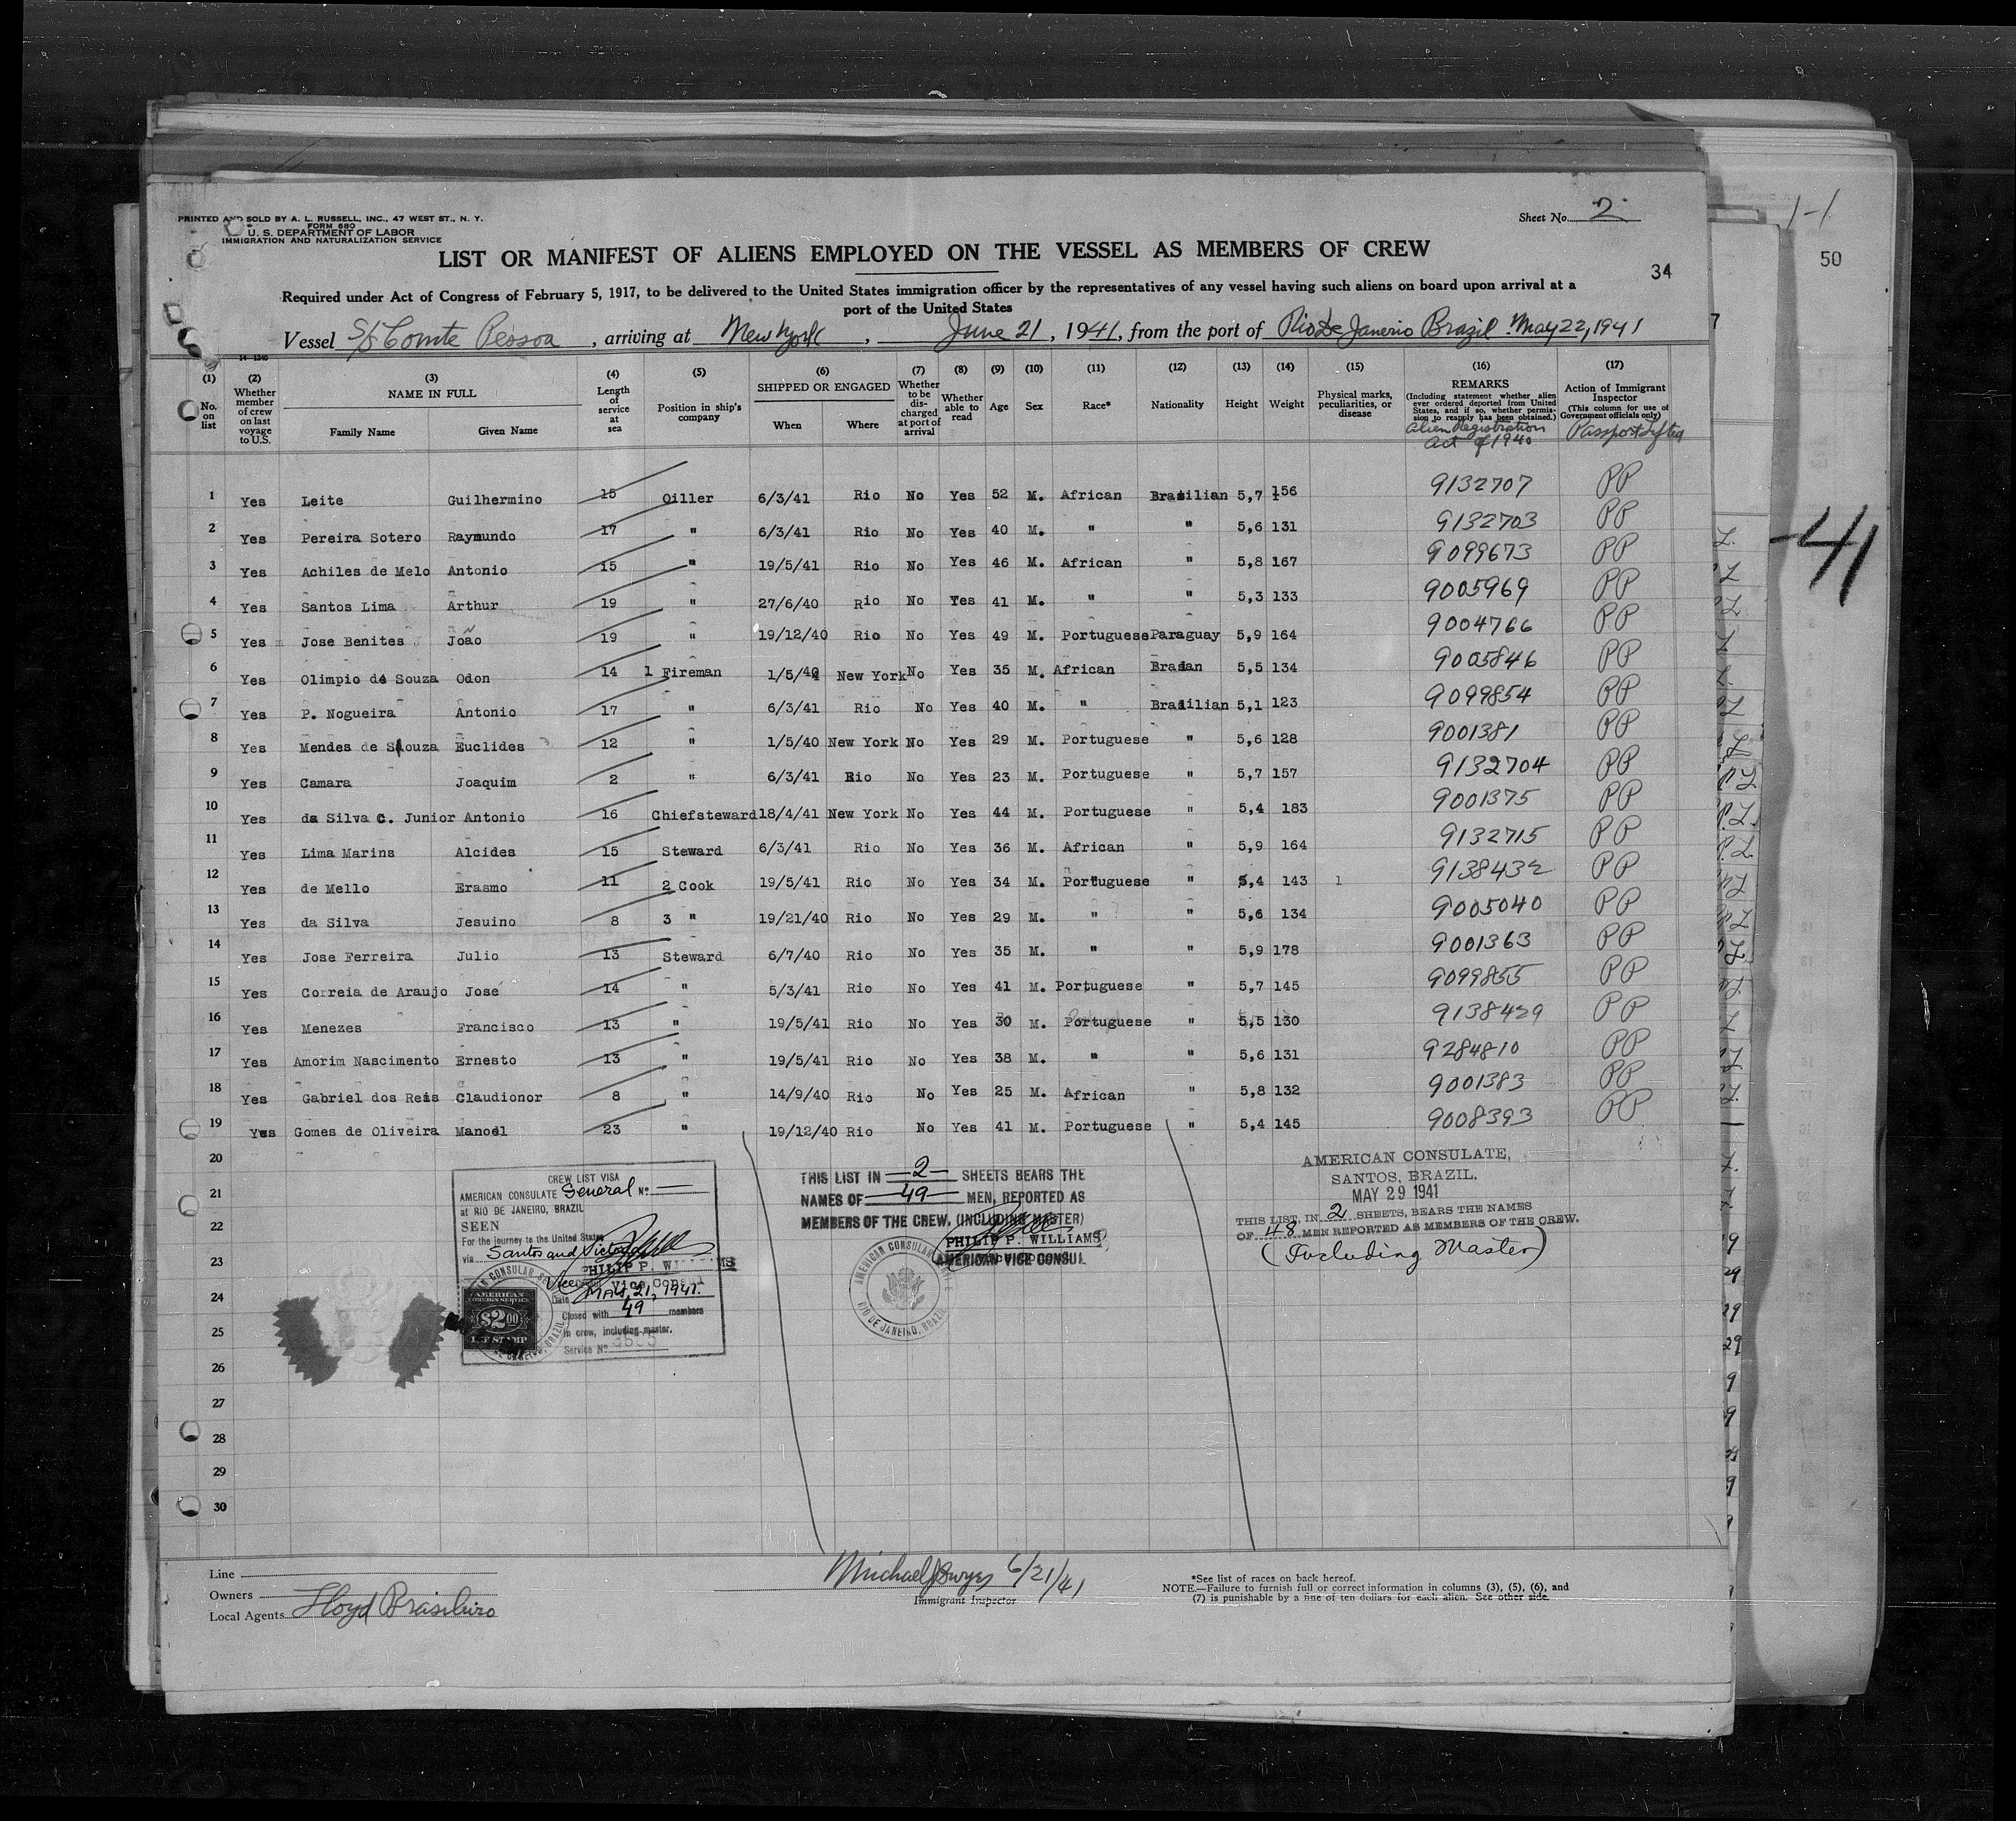 PRINTED AND SOLD BY A. L. RUSSELL, INC., 47 WEST ST., N. Y.
FORM 680
U. S. DEPARTMENT OF LABOR
IMMIGRATION AND NATURALIZATION SERVICE
Sheet No. 2
LIST OR MANIFEST OF ALIENS EMPLOYED ON THE VESSEL AS MEMBERS OF CREW
34
50
Required under Act of Congress of February 5, 1917, to be delivered to the United States immigration officer by the representatives of any vessel having such aliens on board upon arrival at a
port of the United States
Vessel S/S Comte Pessoa, arriving at New York, June 21, 1941, from the port of Rio De Janerio Brazil. May 22, 1941
(1) No. on list
(2) Whether member of crew on last voyage to U.S.
(3) NAME IN FULL Family Name Given Name
(4) Length of service at sea
(5) Position in ship's company
(6) SHIPPED OR ENGAGED When Where
(7) Whether to be discharged at port of arrival
(8) Whether able to read
(9) Age
(10) Sex
(11) Race*
(12) Nationality
(13) Height
(14) Weight
(15) Physical marks, peculiarities, or disease
(16) REMARKS (Including statement whether alien ever ordered deported from United States, and if so, whether permission to reapply has been obtained.) Alien Registration Act of 1940
(17) Action of Immigrant Inspector (This column for use of Government officials only) Passport Lifted
1 Yes Leite Guilhermino 15 Oiller 6/3/41 Rio No Yes 52 M. African Brasilian 5,7 156 9132707 PP
2 Yes Pereira Sotero Raymundo 17 " 6/3/41 Rio No Yes 40 M. " " 5,6 131 9132703 PP
3 Yes Achiles de Melo Antonio 15 " 19/5/41 Rio No Yes 46 M. African " 5,8 167 9099673 PP
4 Yes Santos Lima Arthur 19 " 27/6/40 Rio No Yes 41 M. " " 5,3 133 9005969 PP
5 Yes Jose Benites João 19 " 19/12/40 Rio No Yes 49 M. Portuguese Paraguay 5,9 164 9004766 PP
6 Yes Olimpio de Souza Odon 14 1 Fireman 1/5/40 New York No Yes 35 M. African Brasian 5,5 134 9005846 PP
7 Yes P. Nogueira Antonio 17 " 6/3/41 Rio No Yes 40 M. " Brasilian 5,1 123 9099854 PP
8 Yes Mendes de Souza Euclides 12 " 1/5/40 New York No Yes 29 M. Portuguese " 5,6 128 9001381 PP
9 Yes Camara Joaquim 2 " 6/3/41 Rio No Yes 23 M. Portuguese " 5,7 157 9132704 PP
10 Yes da Silva C. Junior Antonio 16 Chiefsteward 18/4/41 New York No Yes 44 M. Portuguese " 5,4 183 9001375 PP
11 Yes Lima Marins Alcides 15 Steward 6/3/41 Rio No Yes 36 M. African " 5,9 164 9132715 PP
12 Yes de Mello Erasmo 11 2 Cook 19/5/41 Rio No Yes 34 M. Portuguese " 5,4 143 1 9138432 PP
13 Yes da Silva Jesuino 8 3 " 19/21/40 Rio No Yes 29 M. " " 5,6 134 9005040 PP
14 Yes Jose Ferreira Julio 13 Steward 6/7/40 Rio No Yes 35 M. " " 5,9 178 9001363 PP
15 Yes Correia de Araujo José 14 " 5/3/41 Rio No Yes 41 M. Portuguese " 5,7 145 9099855 PP
16 Yes Menezes Francisco 13 " 19/5/41 Rio No Yes 30 M. Portuguese " 5,5 130 9138429 PP
17 Yes Amorim Nascimento Ernesto 13 " 19/5/41 Rio No Yes 38 M. " " 5,6 131 9284810 PP
18 Yes Gabriel dos Reis Claudionor 8 " 14/9/40 Rio No Yes 25 M. African " 5,8 132 9001383 PP
19 Yes Gomes de Oliveira Manoel 23 " 19/12/40 Rio No Yes 41 M. Portuguese " 5,4 145 9008393 PP
20
21
22
23
24
25
26
27
28
29
30
CREW LIST VISA
AMERICAN CONSULATE General No. —
at RIO DE JANEIRO, BRAZIL
SEEN
For the journey to the United States
via Santos and Victoria
PHILIP P. WILLIAMS
Vice Consul
Date MAY 21, 1941.
Closed with 49 members
in crew, including master.
Service No.
AMERICAN
FOREIGN SERVICE
$2.00
FEE STAMP
THIS LIST IN —2— SHEETS BEARS THE
NAMES OF —49— MEN, REPORTED AS
MEMBERS OF THE CREW. (INCLUDING MASTER)
PHILIP P. WILLIAMS
AMERICAN VICE CONSUL
AMERICAN CONSULAR
RIO DE JANEIRO, BRAZIL
AMERICAN CONSULATE,
SANTOS, BRAZIL.
MAY 29 1941
THIS LIST, IN 2 SHEETS, BEARS THE NAMES
OF 48 MEN REPORTED AS MEMBERS OF THE CREW.
(Including Master)
-41
Line
Owners
Local Agents Lloyd Brasileiro
Michael J Dwyer 6/21/41
Immigrant Inspector
*See list of races on back hereof.
NOTE.—Failure to furnish full or correct information in columns (3), (5), (6), and
(7) is punishable by a fine of ten dollars for each alien. See other side.